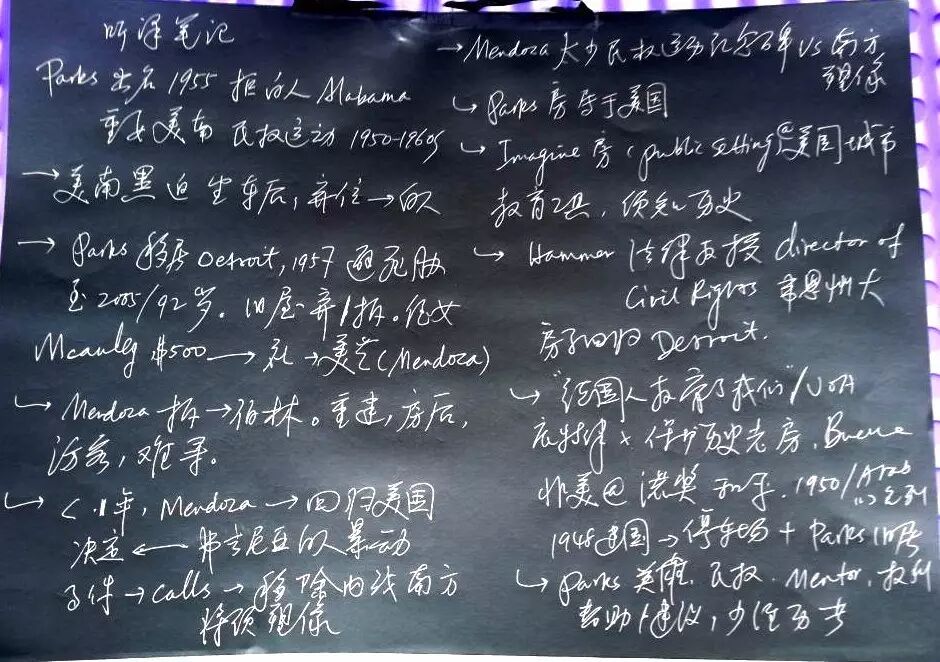 听译笔记
Parks 出名 1955 拒白人 Alabama
重要美南 民权运动 1950-1960s
→ 美南黑迫坐车后，弃位→白人
→ Parks 移居 Detroit, 1957 避死胁
至2005/92岁。旧屋弃/拆。侄女
Mcauley $500 → 礼→美艺(Mendoza)
↳ Mendoza 拆→伯林。重建，房后，
访客，难寻。
↳ <1年，Mendoza → 回归美国
决定 ← 弗吉尼亚白人暴动
事件→calls→移除内战南方
将领塑像
→ Mendoza 太少民权运动纪念碑 vs 南方
塑像
↳ Parks 房 属于美国
↳ Imagine 房 (public setting@美国城市
教育工具，须知历史
↳ Hammer 法律教授 director of
Civil Rights 韦恩州大
房子回归 Detroit.
↳ "德国人教育了我们"/USA
保护历史老房. Bunche
非美@诺奖 和平. 1950/Arab
1948建国→停车场 + Parks 旧居
↳ Parks 英雄. 民权. Mentor. 权利
帮助/建议，